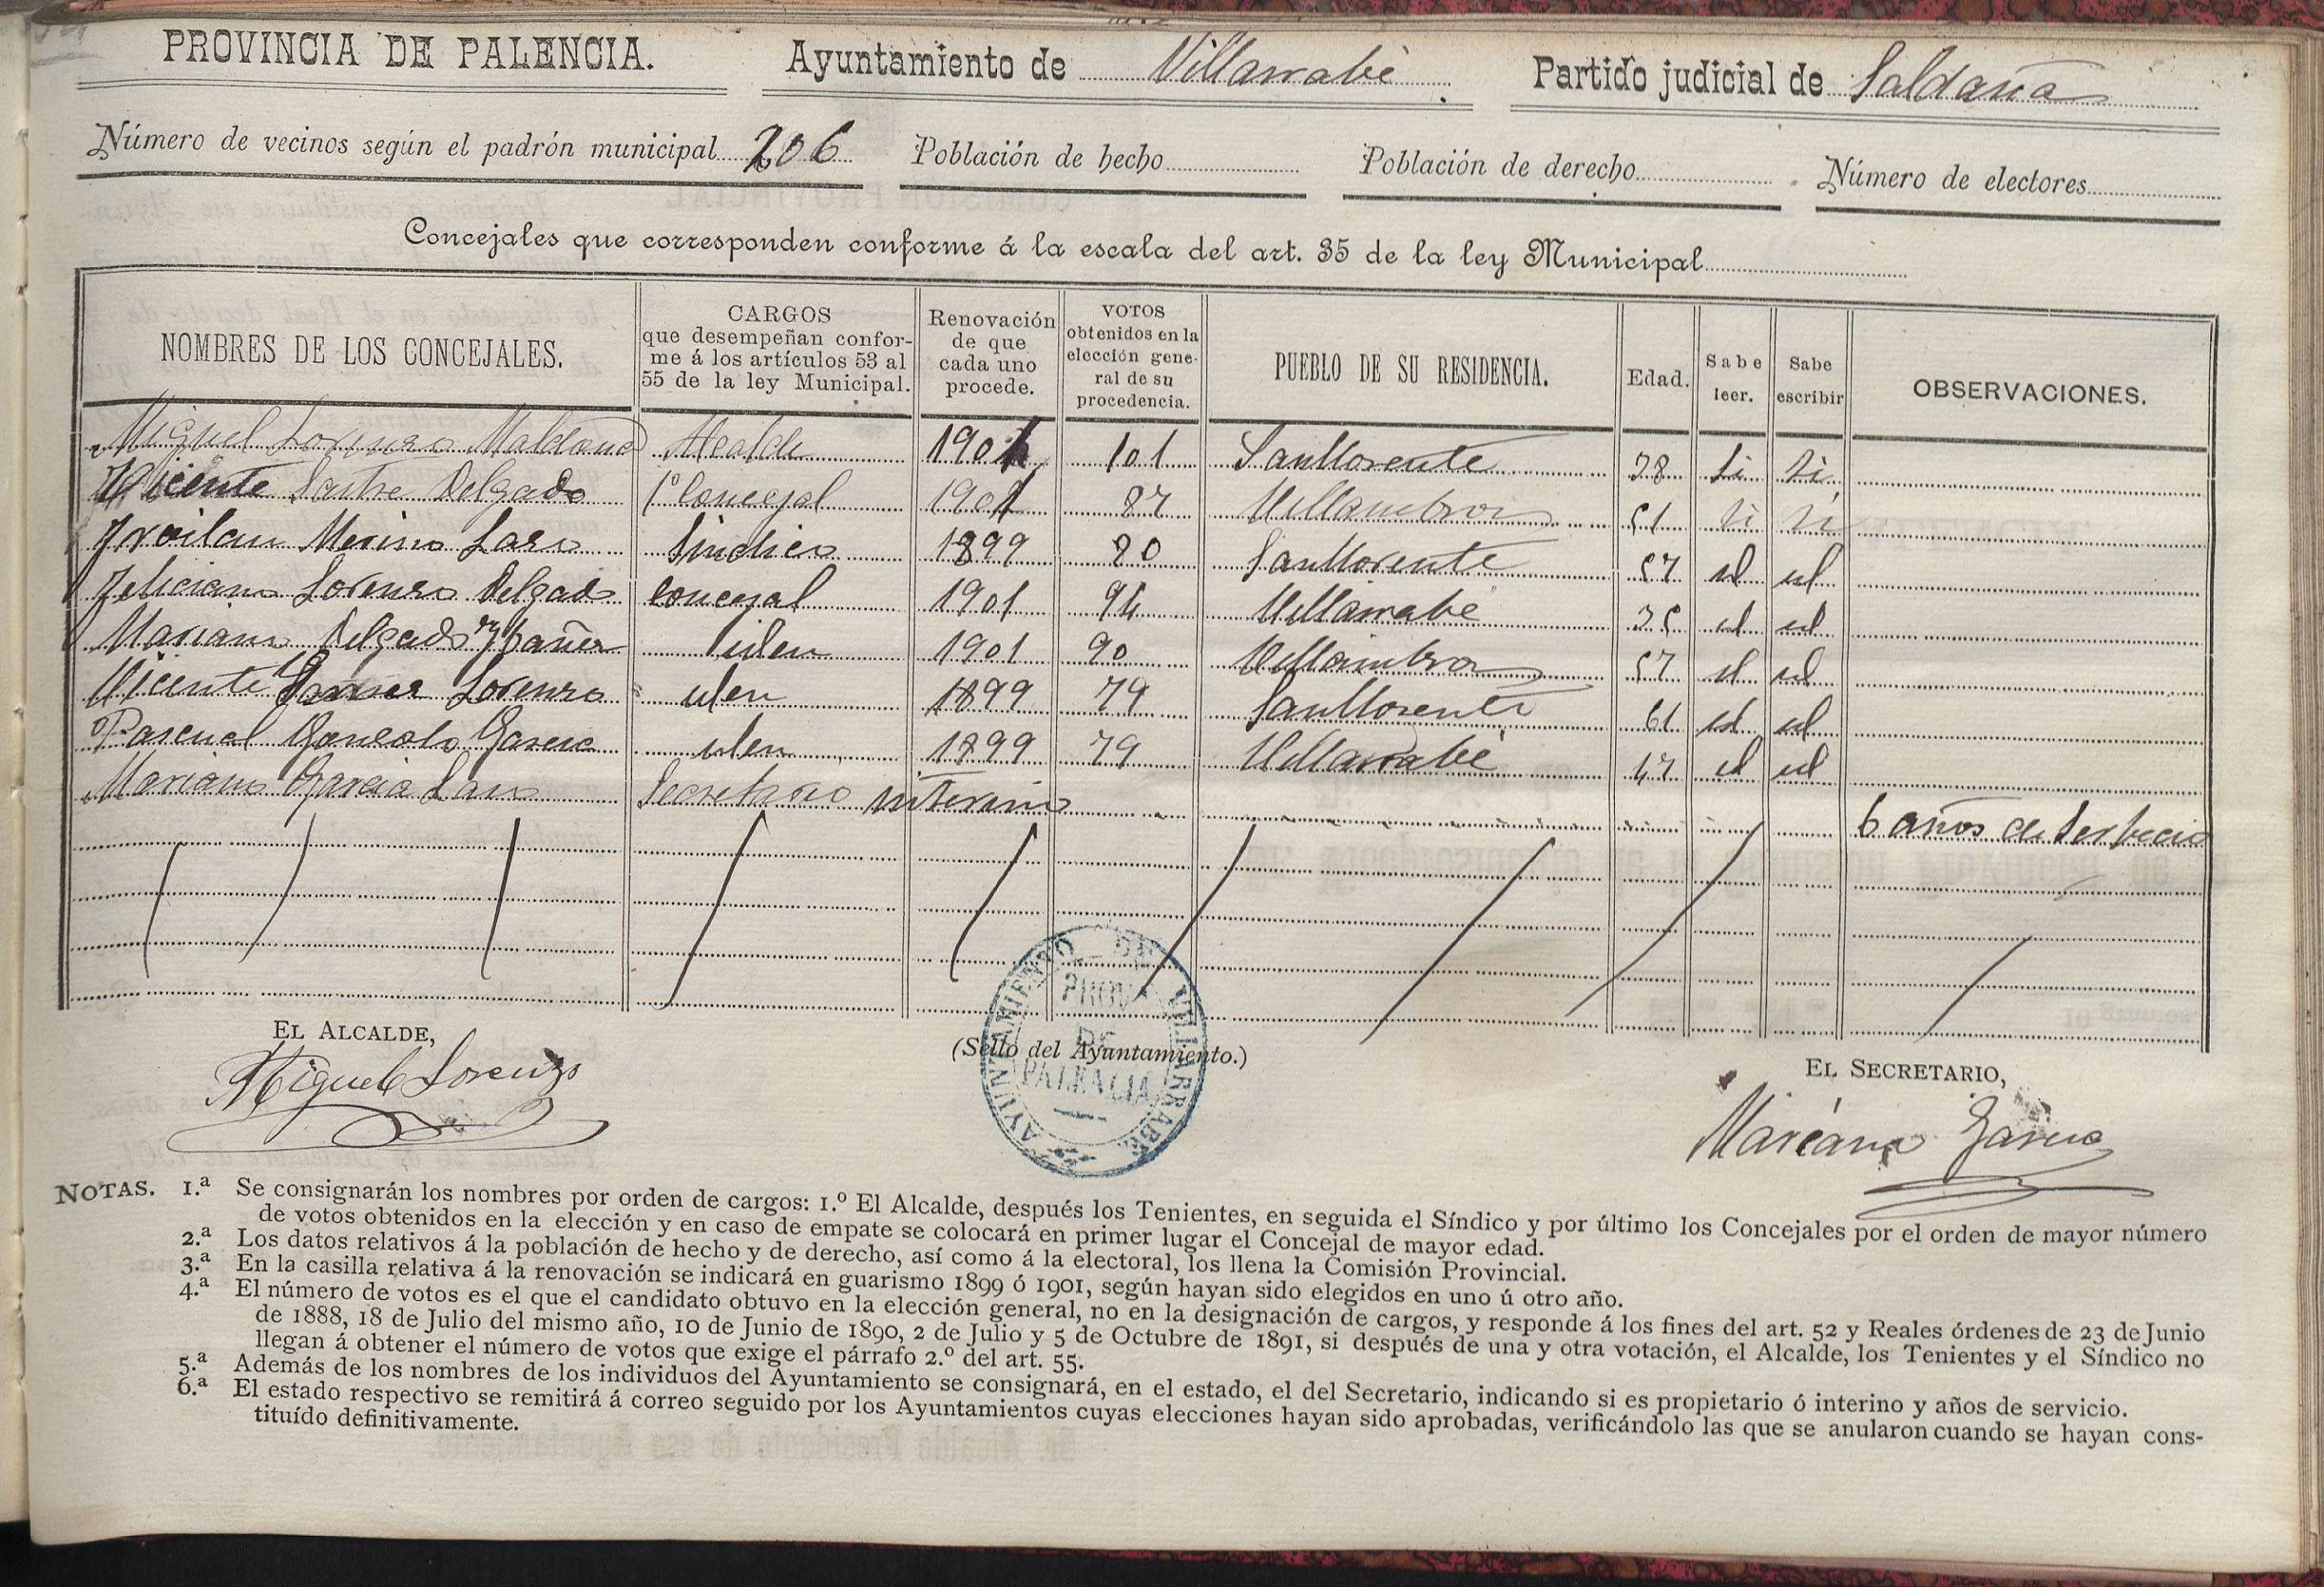 PROVINCIA DE PALENCIA. Ayuntamiento de Villarrabé Partido judicial de Saldaña
Número de vecinos según el padrón municipal 206 Población de hecho Población de derecho Número de electores
Concejales que corresponden conforme á la escala del art. 35 de la ley Municipal
NOMBRES DE LOS CONCEJALES.
CARGOS
que desempeñan confor-
me á los artículos 53 al
55 de la ley Municipal.
Renovación
de que
cada uno
procede.
VOTOS
obtenidos en la
elección gene-
ral de su
procedencia.
PUEBLO DE SU RESIDENCIA.
Edad.
Sabe
leer.
Sabe
escribir
OBSERVACIONES.
Miguel Lorenzo Maldonado Alcalde 1901 101 Sanllorente 38 Si Si
Vicente Sastre Delgado 1º Concejal 1901 87 Villambroz 51 Si Si
Froilan Merino Laso Sindico 1899 80 Sanllorente 57 id id
Feliciano Lorenzo Delgado Concejal 1901 94 Villarrabé 35 id id
Mariano Delgado Ybañez iden 1901 90 Villambroz 57 id id
Vicente Lorenzo iden 1899 79 Sanllorente 61 id id
Pascual Gonzalo Garcia iden 1899 79 Villarrabé 47 id id
Mariano Garcia Laso Secretario interino 6 años de serbicio
EL ALCALDE,
Miguel Lorenzo
(Sello del Ayuntamiento.)
AYUNTAMIENTO DE VILLARRABÉ
PROVA
DE
PALENCIA
EL SECRETARIO,
Mariano Garcia
NOTAS. 1.ª Se consignarán los nombres por orden de cargos: 1.º El Alcalde, después los Tenientes, en seguida el Síndico y por último los Concejales por el orden de mayor número
de votos obtenidos en la elección y en caso de empate se colocará en primer lugar el Concejal de mayor edad.
2.ª Los datos relativos á la población de hecho y de derecho, así como á la electoral, los llena la Comisión Provincial.
3.ª En la casilla relativa á la renovación se indicará en guarismo 1899 ó 1901, según hayan sido elegidos en uno ú otro año.
4.ª El número de votos es el que el candidato obtuvo en la elección general, no en la designación de cargos, y responde á los fines del art. 52 y Reales órdenes de 23 de Junio
de 1888, 18 de Julio del mismo año, 10 de Junio de 1890, 2 de Julio y 5 de Octubre de 1891, si después de una y otra votación, el Alcalde, los Tenientes y el Síndico no
llegan á obtener el número de votos que exige el párrafo 2.º del art. 55.
5.ª Además de los nombres de los individuos del Ayuntamiento se consignará, en el estado, el del Secretario, indicando si es propietario ó interino y años de servicio.
6.ª El estado respectivo se remitirá á correo seguido por los Ayuntamientos cuyas elecciones hayan sido aprobadas, verificándolo las que se anularon cuando se hayan cons-
tituído definitivamente.